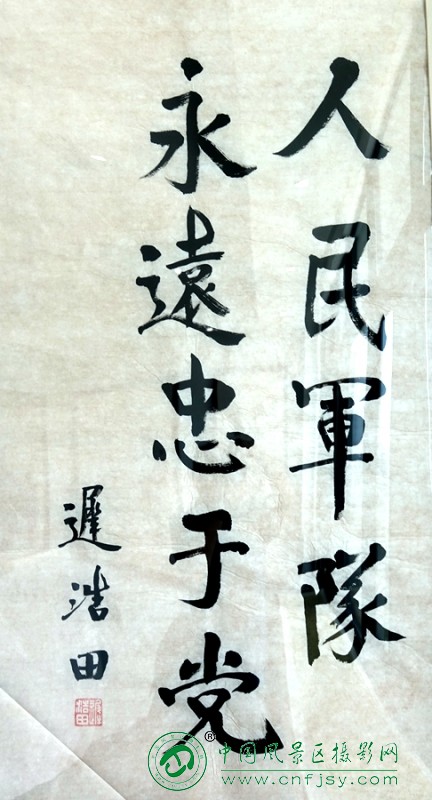 人民軍隊
永遠忠于党
遲浩田
遲浩田
®
中国風景区摄影网
www.cnfjsy.com